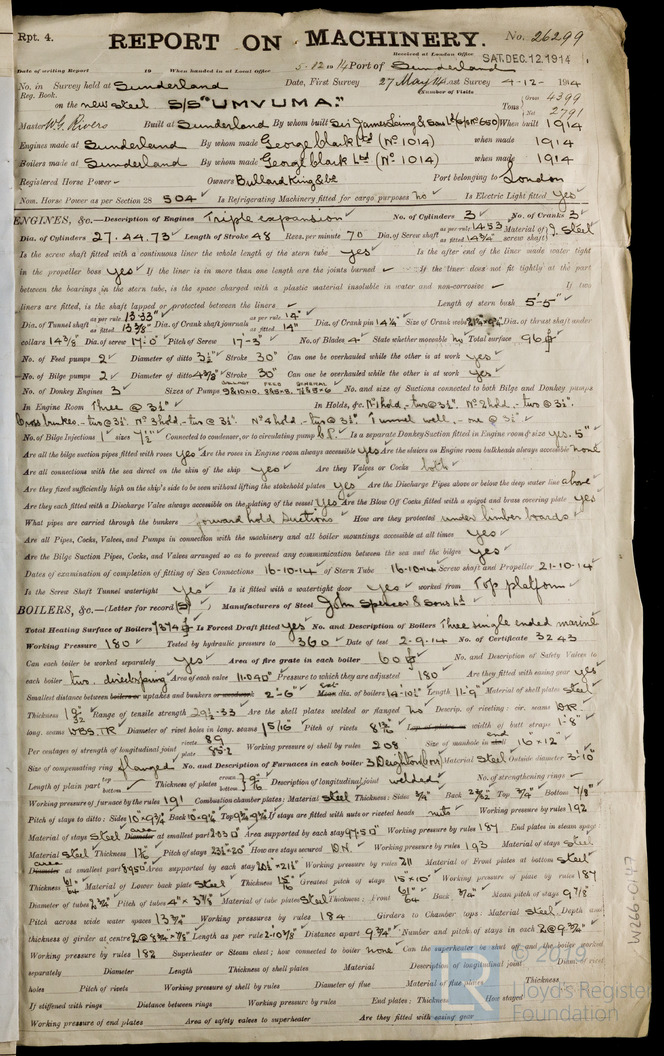 Rpt. 4.
REPORT ON MACHINERY. No. 26299
Received at London Office SAT. DEC. 12 1914
Date of writing Report 19 When handed in at Local Office 5·12·14 Port of Sunderland
No. in Survey held at Sunderland Date, First Survey 27 May 14 Last Survey 4-12- 1914
Reg. Book. (Number of Visits
on the new steel S/S "UMVUMA." Tons Gross 4399
Net 2791
Master W. G. Rivers Built at Sunderland By whom built Sir James Laing & Sons Ld (S/S No 650) When built 1914
Engines made at Sunderland By whom made George Clark Ltd (No 1014) when made 1914
Boilers made at Sunderland By whom made George Clark Ltd (No 1014) when made 1914
Registered Horse Power Owners Bullard King & Co Port belonging to London
Nom. Horse Power as per Section 28 504 Is Refrigerating Machinery fitted for cargo purposes no Is Electric Light fitted Yes
ENGINES, &c.—Description of Engines Triple expansion No. of Cylinders 3 No. of Cranks 3
Dia. of Cylinders 27.44.73 Length of Stroke 48 Revs. per minute 70 Dia. of Screw shaft as per rule 14.53 as fitted 14 3/4" Material of screw shaft Steel
Is the screw shaft fitted with a continuous liner the whole length of the stern tube yes Is the after end of the liner made water tight
in the propeller boss yes If the liner is in more than one length are the joints burned If the liner does not fit tightly at the part
between the bearings in the stern tube, is the space charged with a plastic material insoluble in water and non-corrosive If two
liners are fitted, is the shaft lapped or protected between the liners Length of stern bush 5'-5"
Dia. of Tunnel shaft as per rule 13.33" as fitted 13 3/8 Dia. of Crank shaft journals as per rule 14" as fitted 14" Dia. of Crank pin 14 1/4" Size of Crank webs Dia. of thrust shaft under
collars 14 3/8" Dia. of screw 17'-0" Pitch of Screw 17'-3" No. of Blades 4 State whether moveable no Total surface 96
No. of Feed pumps 2 Diameter of ditto 3 1/2" Stroke 30" Can one be overhauled while the other is at work yes
No. of Bilge pumps 2 Diameter of ditto 4 3/8" Stroke 30" Can one be overhauled while the other is at work yes
No. of Donkey Engines 3 Sizes of Pumps No. and size of Suctions connected to both Bilge and Donkey pumps
In Engine Room Three @ 3 1/2" In Holds, &c. No 1 hold - two @ 3 1/2". No 2 hold - two @ 3 1/2".
Cross bunker - two @ 3 1/2". No 3 hold - two @ 3 1/2". No 4 hold - two @ 3 1/2". Tunnel well - one @ 3 1/2"
No. of Bilge Injections 1 sizes Connected to condenser, or to circulating pump C.P. Is a separate Donkey Suction fitted in Engine room & size yes. 5"
Are all the bilge suction pipes fitted with roses yes Are the roses in Engine room always accessible yes Are the sluices on Engine room bulkheads always accessible none
Are all connections with the sea direct on the skin of the ship yes Are they Valves or Cocks both
Are they fixed sufficiently high on the ship's side to be seen without lifting the stokehold plates yes Are the Discharge Pipes above or below the deep water line above
Are they each fitted with a Discharge Valve always accessible on the plating of the vessel yes Are the Blow Off Cocks fitted with a spigot and brass covering plate yes
What pipes are carried through the bunkers forward hold suctions How are they protected under limber boards
Are all Pipes, Cocks, Valves, and Pumps in connection with the machinery and all boiler mountings accessible at all times yes
Are the Bilge Suction Pipes, Cocks, and Valves arranged so as to prevent any communication between the sea and the bilges yes
Dates of examination of completion of fitting of Sea Connections 16-10-14 of Stern Tube 16-10-14 Screw shaft and Propeller 21-10-14
Is the Screw Shaft Tunnel watertight yes Is it fitted with a watertight door yes worked from Top platform
BOILERS, &c.—(Letter for record (S) Manufacturers of Steel John Spencer & Sons Ld
Total Heating Surface of Boilers 7374 Is Forced Draft fitted yes No. and Description of Boilers Three single ended marine
Working Pressure 180 Tested by hydraulic pressure to 360 Date of test 2-9-14 No. of Certificate 3243
Can each boiler be worked separately yes Area of fire grate in each boiler 60 No. and Description of Safety Valves to
each boiler two. direct spring Area of each valve 11.040" Pressure to which they are adjusted 180 Are they fitted with easing gear yes
Smallest distance between boilers or uptakes and bunkers or woodwork 2'-6" Mean dia. of boilers 14-10 1/2" Length 11'-9" Material of shell plates steel
Thickness 1 9/32 Range of tensile strength 29 1/2-33 Are the shell plates welded or flanged no Descrip. of riveting: cir. seams D.R.
long. seams D.B.S. T.R. Diameter of rivet holes in long. seams 1 5/16 Pitch of rivets width of butt straps 1'-8"
Per centages of strength of longitudinal joint rivets 89 plate 85.2 Working pressure of shell by rules 208 Size of manhole in end 16" x 12"
Size of compensating ring flanged No. and Description of Furnaces in each boiler 3 Deighton Material Steel Outside diameter 3'-10"
Length of plain part top bottom Thickness of plates crown bottom Description of longitudinal joint welded No. of strengthening rings
Working pressure of furnace by the rules 191 Combustion chamber plates: Material steel Thickness: Sides 3/4" Back 23/32 Top 3/4" Bottom 7/8"
Pitch of stays to ditto: Sides 10 x 9 3/4 Back Top If stays are fitted with nuts or riveted heads nuts Working pressure by rules 192
Material of stays steel area at smallest part 2.030 Area supported by each stay 97.50 Working pressure by rules 187 End plates in steam space
Material steel Thickness Pitch of stays How are stays secured D.N. Working pressure by rules 193 Material of stays steel
area at smallest part 8950 Area supported by each stay Working pressure by rules 211 Material of Front plates at bottom steel
Thickness 61/64 Material of Lower back plate steel Thickness 15/16 Greatest pitch of stays 15" x 10" Working pressure of plate by rules 187
Diameter of tubes 2 3/4" Pitch of tubes 4" x 3 7/8 Material of tube plates steel Thickness: Front 61/64" Back 3/4" Mean pitch of stays 9 7/8"
Pitch across wide water spaces 13 3/4" Working pressures by rules 184 Girders to Chamber tops: Material steel. Depth and
thickness of girder at centre 2 @ 8 3/4 x 7/8" Length as per rule Distance apart 9 3/4" Number and pitch of stays in each 2 @ 9 3/4"
Working pressure by rules 182 Superheater or Steam chest; how connected to boiler none Can the superheater be shut off and the boiler worked
separately Diameter Length Thickness of shell plates Material Description of longitudinal joint Diam. of rivet
holes Pitch of rivets Working pressure of shell by rules Diameter of flue Material of flue plates Thickness
If stiffened with rings Distance between rings Working pressure by rules End plates: Thickness How stayed
Working pressure of end plates Area of safety valves to superheater Are they fitted with easing gear
W266-0147
© 2019
Lloyd's Register
Foundation
LR